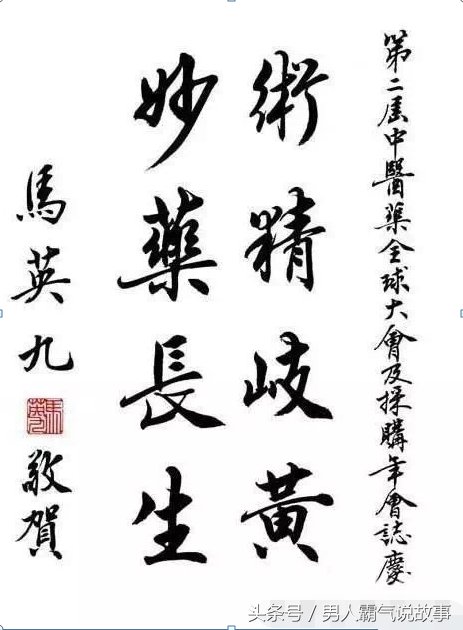 第二届中醫藥全球大會及採購年會誌慶
術精岐黃
妙藥長生
馬英九
敬賀
头条号／男人霸气说故事